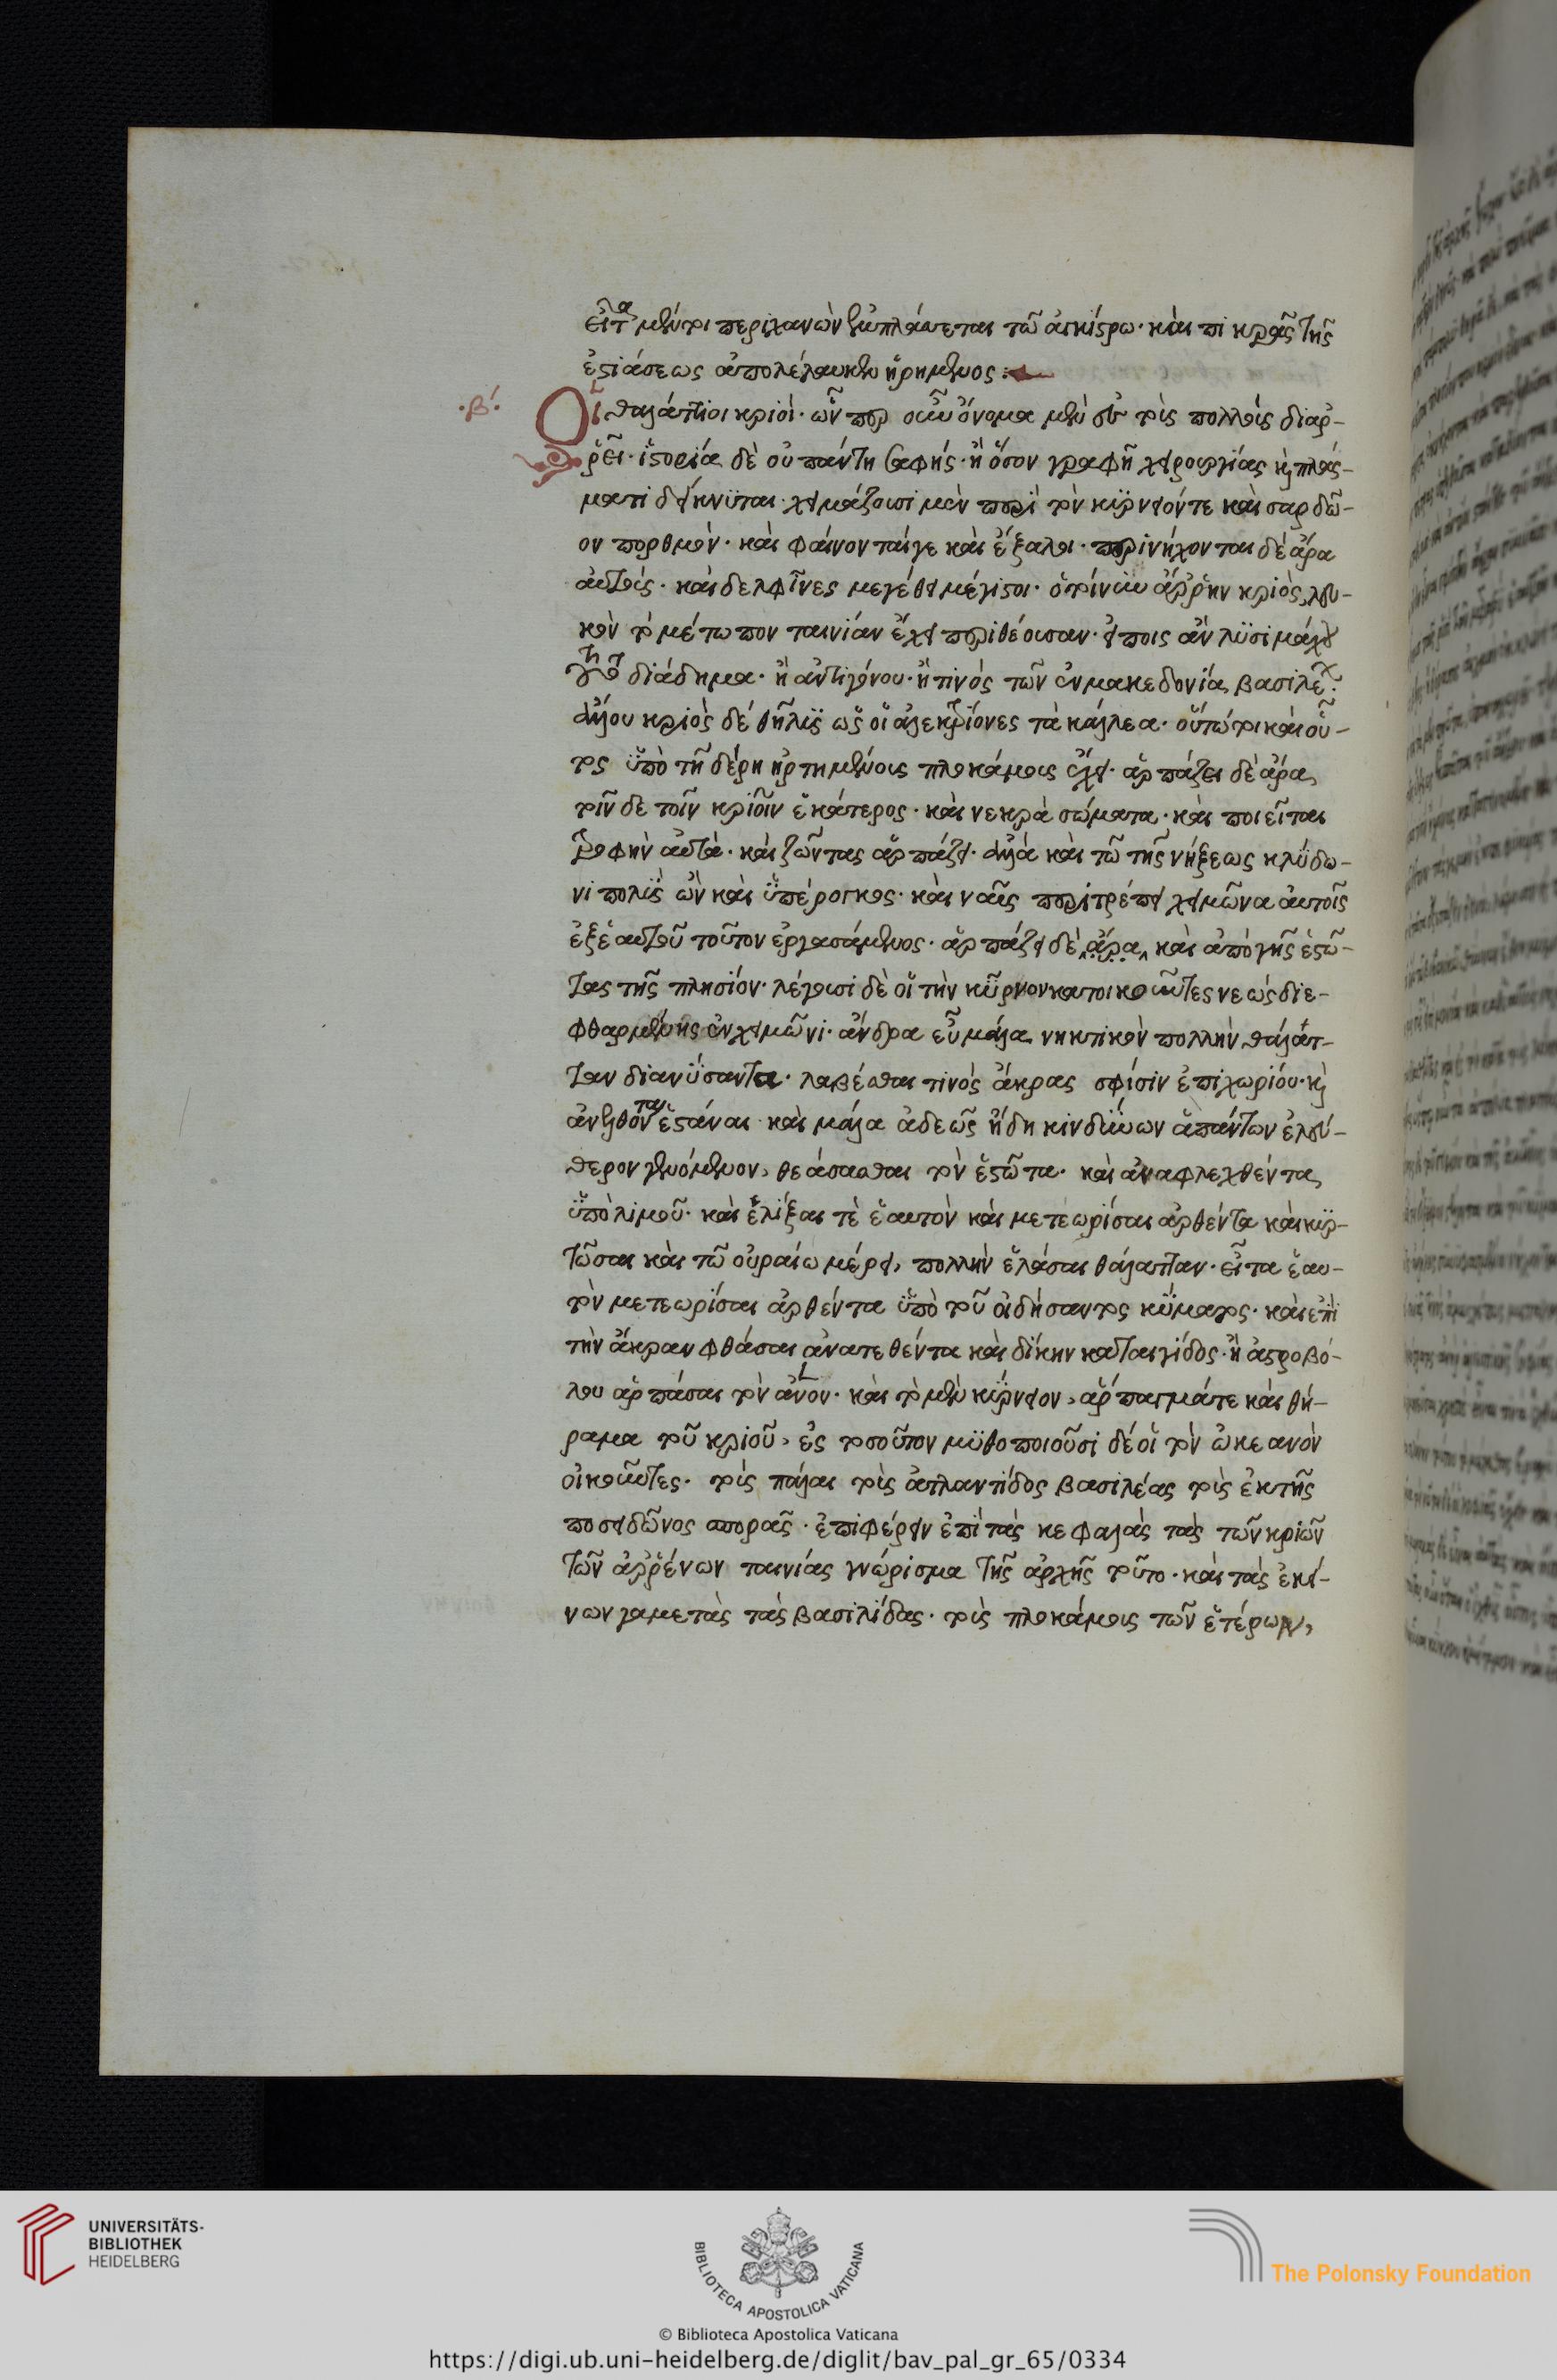 εἶτα μέντοι περιχανὼν ἐμπλάσσεται τῷ ἀγκίστρῳ· καὶ πικρᾶς τῆς
ἑστιάσεως ἀπολέλαυκεν ᾑρημένος:
·β΄· Οἱ θαλάττιοι κριοὶ· ὧνπερ οὖν ὄνομα μὲν ἐς τοὺς πολλοὺς διαρ-
ῥεῖ· ἱστορία δὲ οὐ πάντη σαφής· ἢ ὅσον γραφῆ χειρουργίας κ πλάσ-
ματι δείκνυται· χειμάζουσι μὲν περὶ τὸν κύρνειόν τε καὶ σαρδῶ-
ον πορθμόν· καὶ φαίνονταί γε καὶ ἔξαλοι· περινήχονται δὲ ἄρα
αὐτοὺς· καὶ δελφῖνες μεγέθει μέγιστοι· ὁ τοίνυν ἄρρην κριὸς, λευ-
κὸν τὸ μέτωπον ταινίαν ἔχει περιθέουσαν· εἴποις ἂν λυσιμάχου
τοῦτο διάδημα· ἢ ἀντιγόνου· ἤ τινός τῶν ἐν μακεδονία βασιλέως
ἄλλου κριὸς δὲ θῆλυς ὡς οἱ ἀλεκτρυόνες τὰ κάλλεα· οὕτω τοι καὶ οὗ-
τος ὑπὸ τῇ δέρη ἠρτημένους πλοκάμους ἔχει· ἁρπάζει δὲ ἄρα
τοῖν δὲ τοῖν κριοῖν ἑκάτερος· καὶ νεκρὰ σώματα· καὶ ποιεῖται
τροφὴν αὐτὰ· καὶ ζῶντας ἁρπάζει· ἀλλὰ καὶ τῷ τῆς νήξεως κλύδω-
νι πολὺς ὢν καὶ ὑπέρογκος· καὶ ναῦς περιτρέπει χειμῶνα αὐτοῖς
ἐξ ἑαυτοῦ τοῦτον ἐργασάμενος· ἁρπάζει δὲ ἄρα καὶ ἀπὸ γῆς ἑστῶ-
τας τῆς πλησίον· λέγουσι δὲ οἱ τὴν κύρνον κατοικοῦντες νεὼς διε-
φθαρμένης ἐν χειμῶνι· ἄνδρα εὖ μάλα νηκτικὸν πολλὴν θάλατ-
ταν διανύσαντα· λαβέσθαι τινός ἄκρας σφίσιν ἐπιχωρίου· κ
ἀνελθόντα ἑστάναι καὶ μάλα ἀδεῶς ἤδη κινδύνων ἁπάντων ἐλεύ-
θερον γενόμενον, θεάσασθαι τὸν ἑστῶτα· καὶ ἀναφλεχθέντα
ὑπὸ λιμοῦ· καὶ ἑλίξαι τὲ ἑαυτὸν καὶ μετεωρίσαι ἀρθέντα καὶ κυρ-
τῶσαι καὶ τῷ οὐραίῳ μέρει, πολλὴν ἐλάσαι θάλατταν· εἶτα ἑαυ-
τὸν μετεωρίσαι ἀρθέντα ὑπὸ τοῦ οἰδήσαντος κύματος· καὶ ἐπὶ
τὴν ἄκραν φθάσαι ἀνατεθέντα καὶ δίκην καταιγίδος· ἢ ἀστροβό-
λου ἁρπάσαι τὸν ἄνον· καὶ τὸ μὲν κύρνειον, ἅρπαγμά τε καὶ θή-
ραμα τοῦ κριοῦ, ἐς τοσοῦτον μυθοποιοῦσι δὲ οἱ τὸν ὠκεανὸν
οἰκοῦντες· τοὺς πάλαι τοὺς ἀτλαντίδος βασιλέας τοὺς ἐκ τῆς
ποσειδῶνος σπορᾶς· ἐπιφέρειν ἐπὶ τὰς κεφαλὰς τὰς τῶν κριῶν
τῶν ἀρρένων ταινίας γνώρισμα τῆς ἀρχῆς τοῦτο· καὶ τὰς ἐκεί-
νων γαμετὰς τὰς βασιλίδας· τοὺς πλοκάμους τῶν ἑτέρων,
UNIVERSITÄTS-
BIBLIOTHEK
HEIDELBERG
BIBLIOTECA APOSTOLICA VATICANA
© Biblioteca Apostolica Vaticana
The Polonsky Foundation
https://digi.ub.uni-heidelberg.de/diglit/bav_pal_gr_65/0334